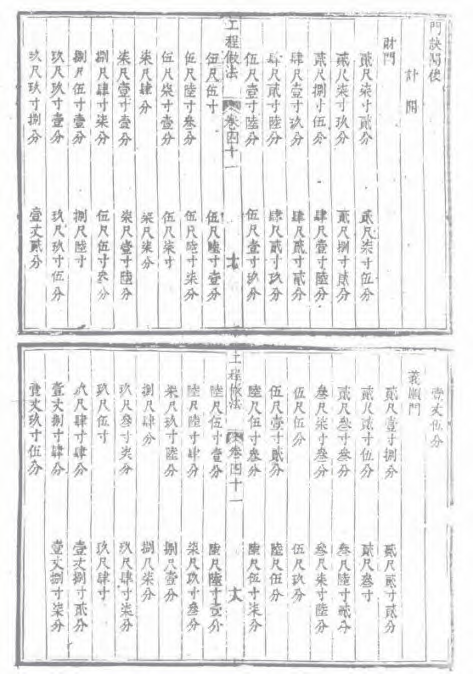 門訣開後
計開
財門
貳尺柒寸貳分　貳尺柒寸伍分
貳尺柒寸玖分　貳尺捌寸貳分
貳尺捌寸伍分　肆尺壹寸陸分
肆尺壹寸玖分　肆尺貳寸貳分
肆尺貳寸陸分　肆尺貳寸玖分
伍尺壹寸陸分　伍尺壹寸玖分
工程做法　卷四十一
伍尺伍寸　伍尺陸寸壹分
伍尺陸寸叁分　伍尺陸寸柒分
伍尺柒寸壹分　伍尺柒寸
柒尺肆分　柒尺柒分
柒尺壹寸壹分　柒尺壹寸陸分
捌尺肆寸柒分　伍尺伍寸叁分
捌尺伍寸壹分　捌尺陸寸
玖尺玖寸壹分　玖尺玖寸伍分
玖尺玖寸捌分　壹丈貳分
壹丈伍分
義順門
貳尺壹寸捌分　貳尺貳寸貳分
貳尺貳寸伍分　貳尺叁寸
貳尺叁寸叁分　叁尺陸寸貳分
叁尺柒寸叁分　叁尺柒寸陸分
伍尺伍分　伍尺玖分
伍尺壹寸貳分　陸尺伍分
陸尺伍寸叁分　陸尺伍寸柒分
工程做法　卷四十一
陸尺伍寸壹分　陸尺陸寸壹分
陸尺陸寸肆分　柒尺玖寸叁分
柒尺玖寸陸分　捌尺壹分
捌尺肆分　捌尺柒分
玖尺叁寸柒分　玖尺肆寸柒分
玖尺伍寸　玖尺肆寸
捌尺肆寸肆分　壹丈捌寸貳分
壹丈捌寸肆分　壹丈捌寸柒分
壹丈玖寸伍分